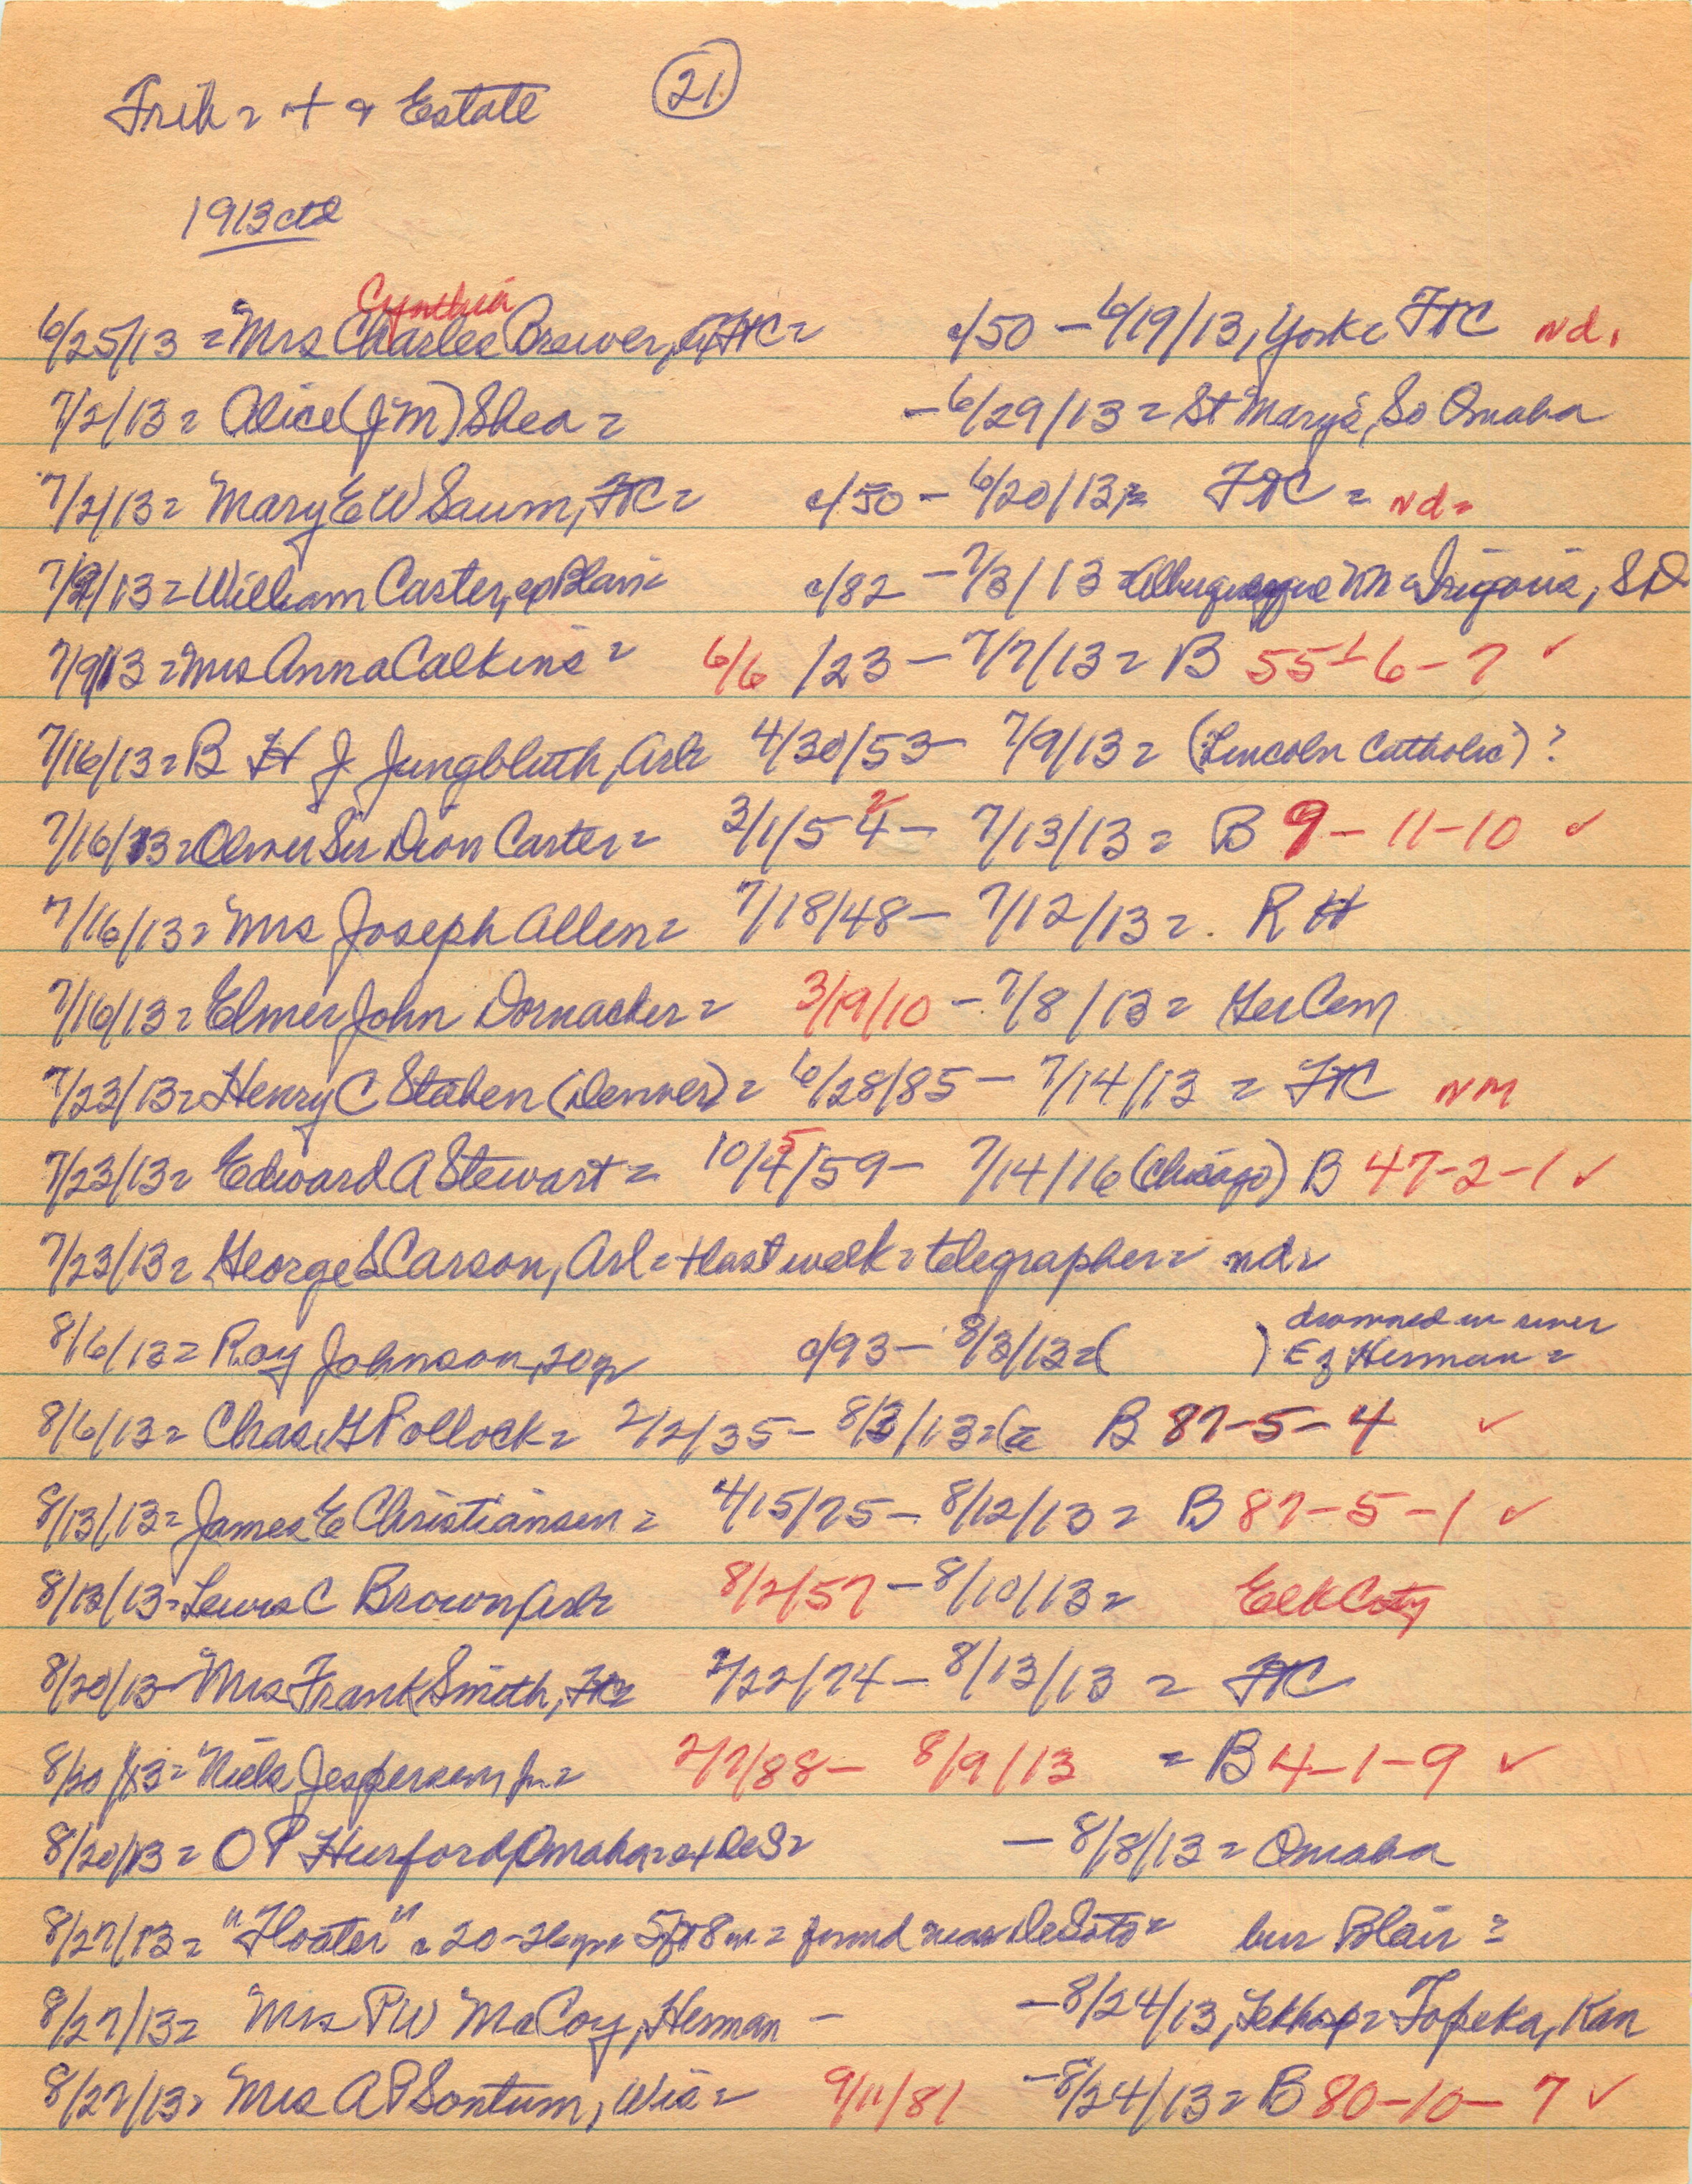 Trib = + & Estate 21
1913 ctd
Cynthia
6/25/13 = Mrs Charles Brewer, FTC = c/50 - 6/19/13, York = FTC nd.
7/2/13 = Alice (J M) Shea = - 6/29/13 = St Mary's, So Omaha
7/2/13 = Mary E W Saum, FTC = c/50 - 6/20/13 = FTC = nd =
7/9/13 = William Caster, ex Blair = c/82 - 7/3/13 = Albuquerque NM = SD
7/9/13 = Mrs Anna Calkins = 6/6/23 - 7/7/13 = B 55-6-7 ✓
7/16/13 = B H J Jungbluth, Arl = 4/30/53 - 7/9/13 = (Lincoln Catholic) ?
7/16/13 = Oliver Sir Dion Carter = 3/1/54 2 - 7/13/13 = B 9-11-10 ✓
7/16/13 = Mrs Joseph Allen = 7/18/48 - 7/12/13 = . R H
7/16/13 = Elmer John Dornacker = 3/19/10 - 7/8/13 = Ger Cem
7/23/13 = Henry C Staben (Denver) = 6/28/85 - 7/14/13 = FTC NM
7/23/13 = Edward A Stewart = 10/4 5/59 - 7/14/16 (Chicago) B 47-2-1 ✓
7/23/13 = George S Carson, Arl = + last week = telegrapher = nd =
8/6/13 = Roy Johnson, 20 yr c/93 - 8/3/13 = ( ) drowned in river
E of Herman =
8/6/13 = Chas. G Pollock = 2/2/35 - 8/3/13 = B 87-5-4 ✓
8/13/13 = James E Christiansen = 4/15/75 - 8/12/13 = B 87-5-1 ✓
8/13/13 = Lewis C Brown, Arl = 8/2/57 - 8/10/13 = Elk City
8/20/13 - Mrs Frank Smith, FTC = 2/22/74 - 8/13/13 = FTC
8/20/13 = Niels Jespersen, Jr. = 2/7/88 - 8/9/13 = B 4-1-9 ✓
8/20/13 = O P Hurford, Omaha = ex DeS = - 8/8/13 = Omaha
8/27/13 = "Floater" c 20-26 yrs 5 ft 8 in = found near DeSoto = bur Blair =
8/27/13 = Mrs P W McCoy, Herman - - 8/24/13, Tekhap = Topeka, Kan
8/27/13 = Mrs A P Sontum, Wis = 9/11/81 - 8/24/13 = B 80-10-7 ✓